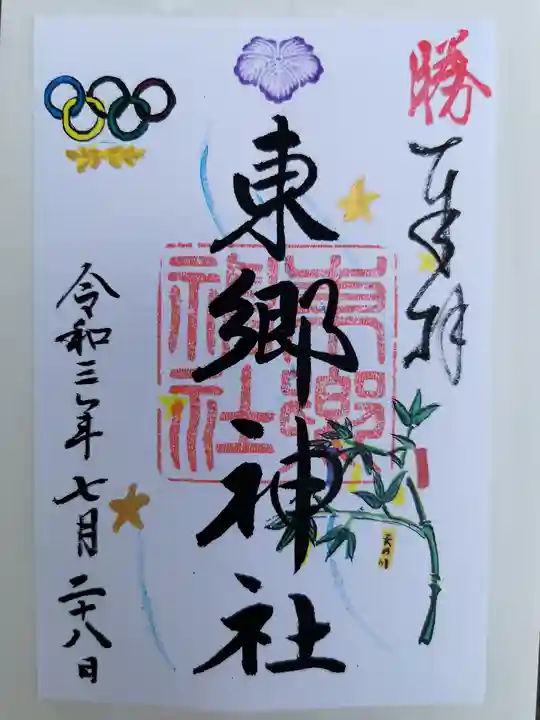 勝
奉拝
東郷神社
東郷神社
令和三年七月二十八日
天の川